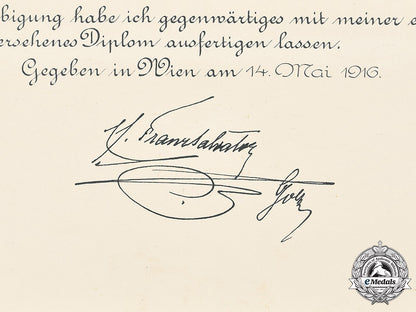 bigung habe ich gegenwärtiges mit meiner e
ersehenes Diplom ausfertigen lassen.
Gegeben in Wien am 14. Mai 1916.
Franz Salvator
eMedals